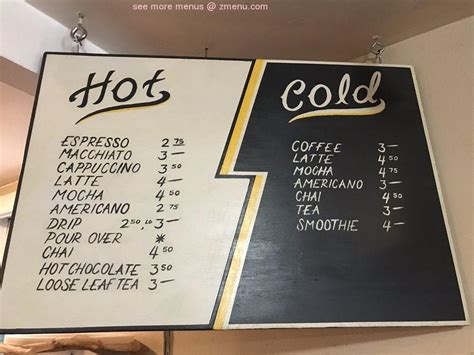 see more menus @ zmenu.com
Hot
ESPRESSO 2 75
MACCHIATO 3 —
CAPPUCCINO 3 50
LATTE 4 —
MOCHA 4 50
AMERICANO 2 75
DRIP 2 50, 16 3 —
POUR OVER *
CHAI 4 50
HOT CHOCOLATE 3 50
LOOSE LEAF TEA 3 —
Cold
COFFEE 3 —
LATTE 4 50
MOCHA 4 75
AMERICANO 3 —
CHAI 4 50
TEA 3 —
SMOOTHIE 4 —